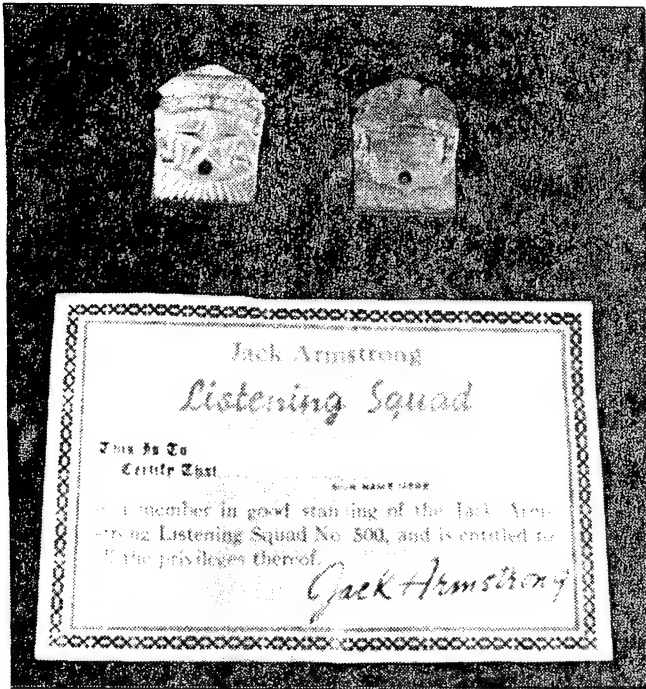 Jack Armstrong
Listening Squad
This Is To
Certify That
NAME HERE
member in good standing of the Jack Arm-
strong Listening Squad No. 500, and is entitled to
the privileges thereof.
Jack Armstrong